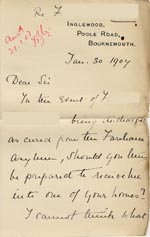 Re F
INGLEWOOD,
POOLE ROAD,
BOURNEMOUTH.
Jan. 30 1907
Dear Sir
In the Event of F.
being discharged
as cured from the Farnham
Asylum, should you
be prepared to receive
into one of your homes?
I cannot think what